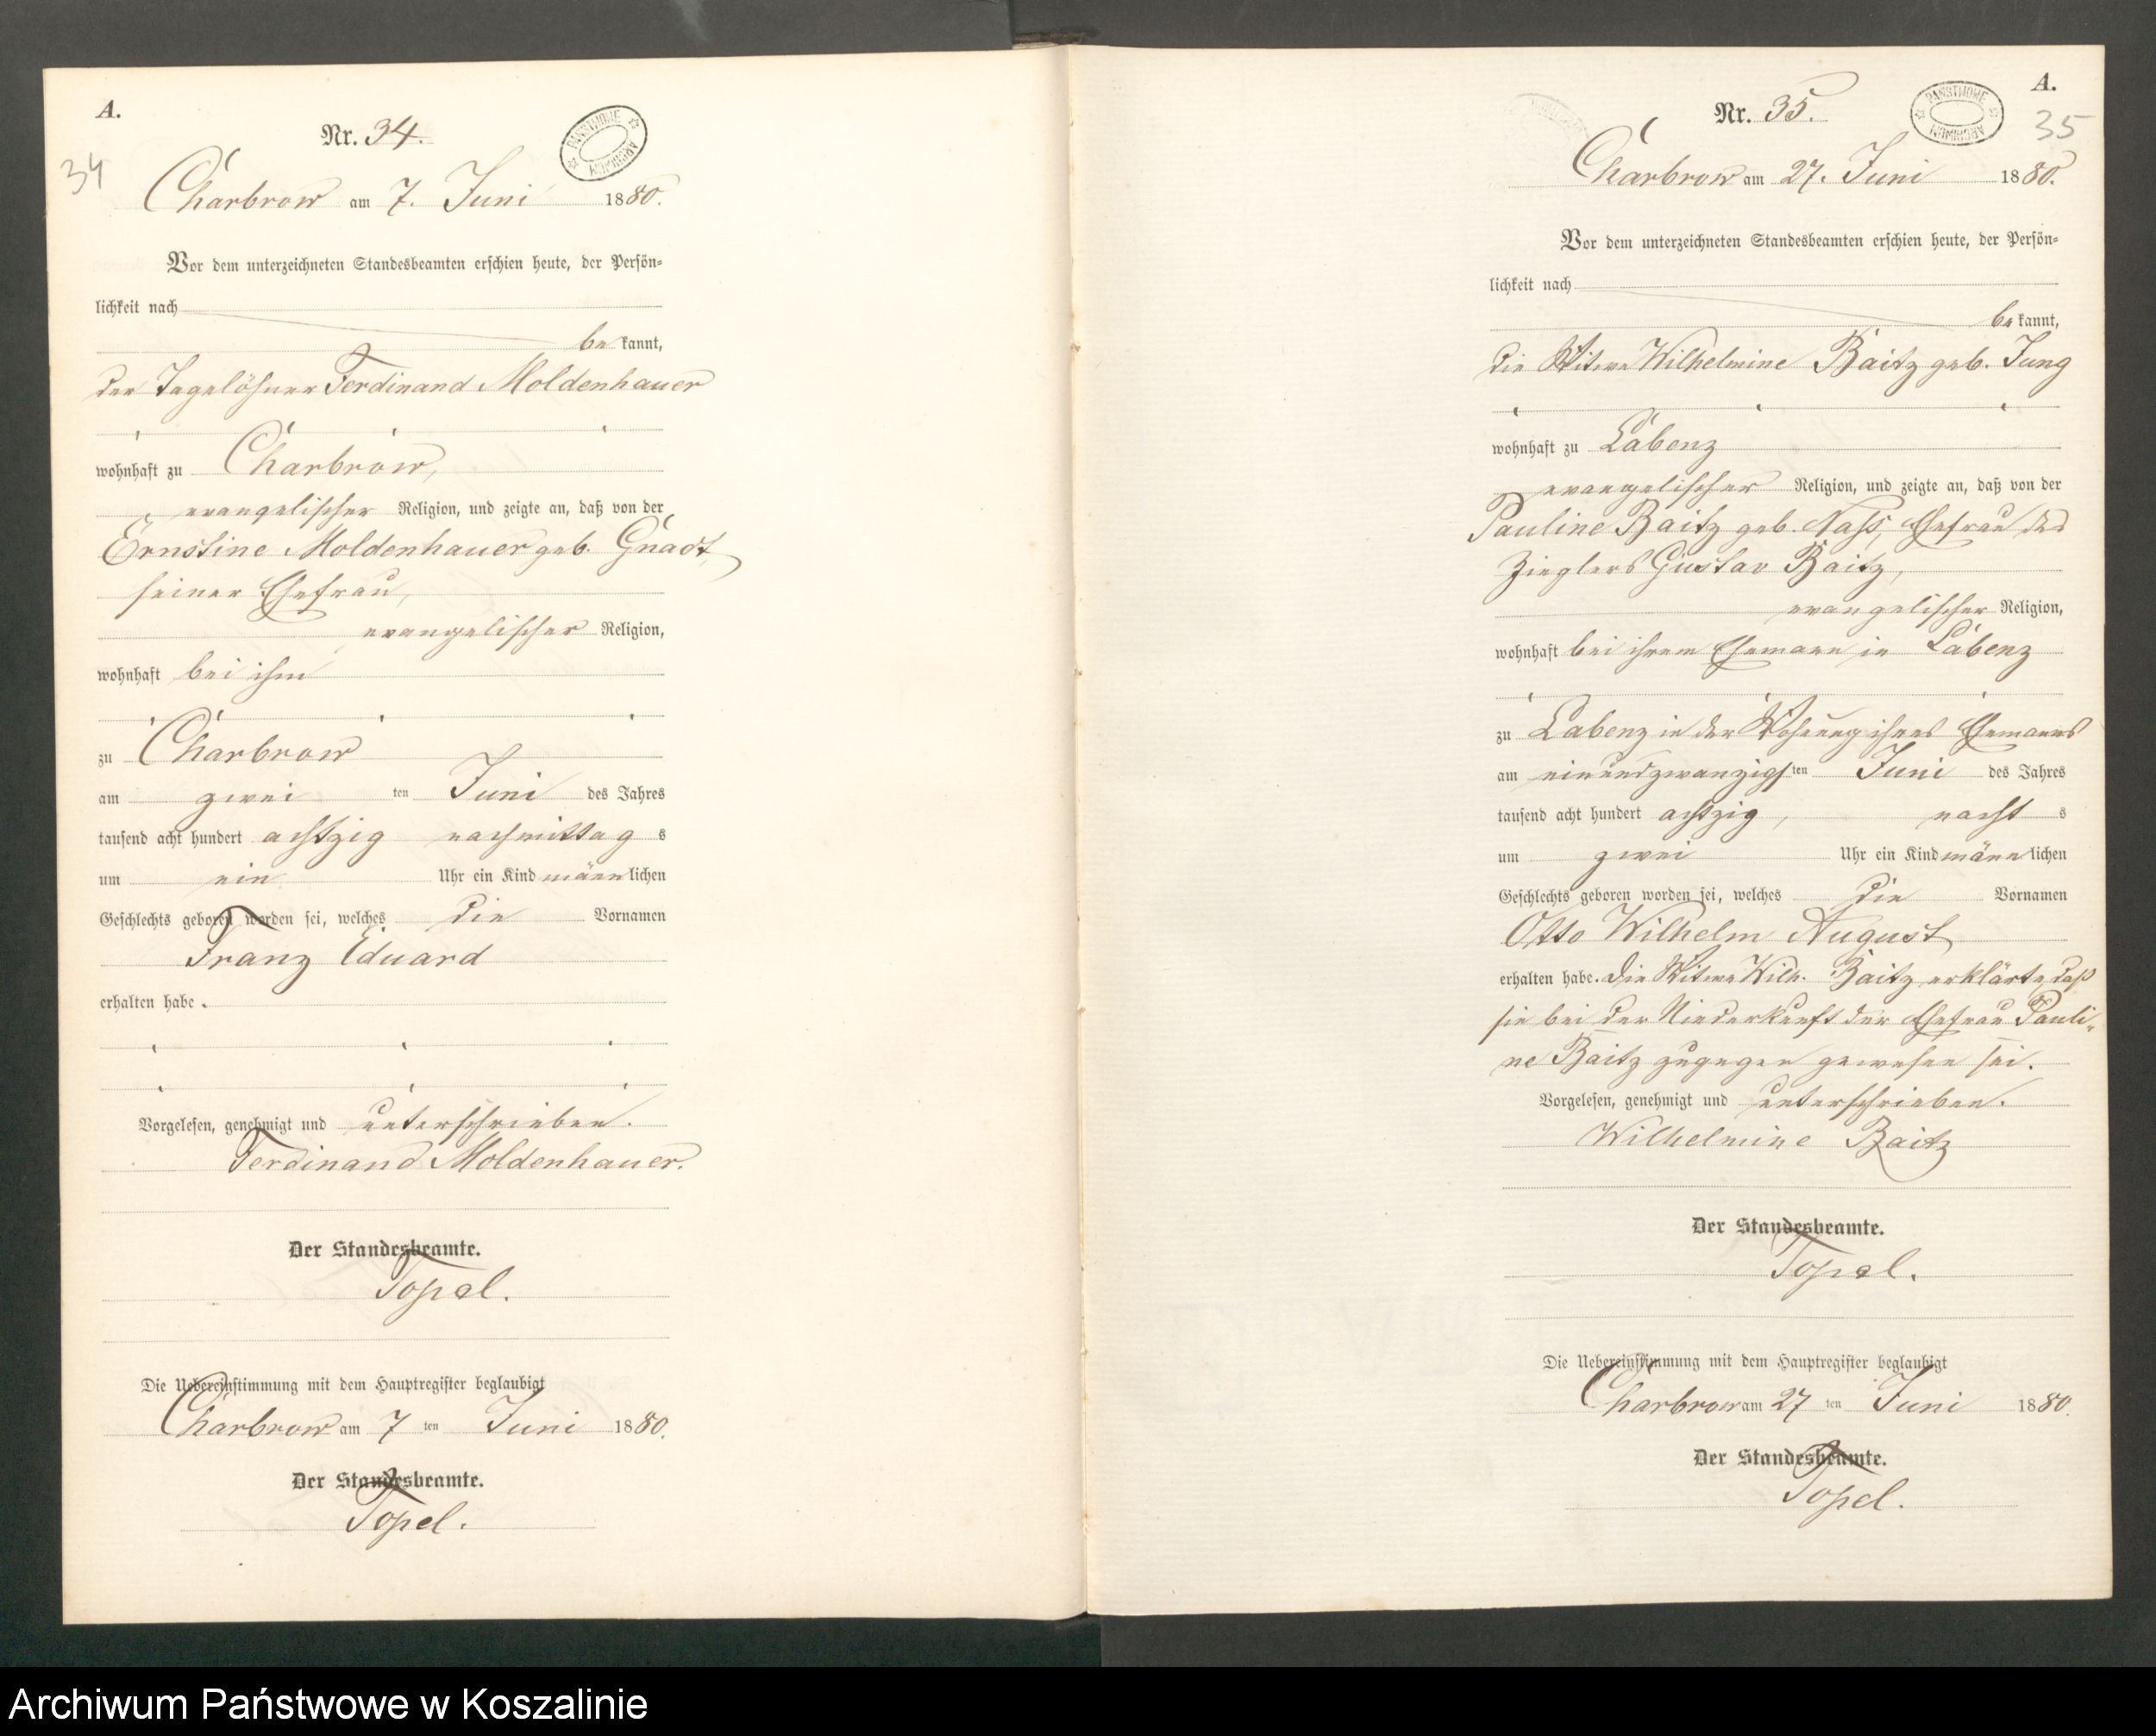 A.
Nr. 34.
34
PAŃSTWOWE ARCHIWUM
Charbrow am 7. Juni 1880.
Vor dem unterzeichneten Standesbeamten erschien heute, der Persön-
lichkeit nach
be kannt,
der Tagelöhner Ferdinand Moldenhauer
wohnhaft zu Charbrow,
evangelischer Religion, und zeigte an, daß von der
Ernstine Moldenhauer geb. Gnadt,
seiner Ehefrau,
evangelischer Religion,
wohnhaft bei ihm
zu Charbrow
am zwei ten Juni des Jahres
tausend acht hundert achtzig nachmittag s
um ein Uhr ein Kind männlichen
Geschlechts geboren worden sei, welches die Vornamen
Franz Eduard
erhalten habe.
Vorgelesen, genehmigt und unterschrieben.
Ferdinand Moldenhauer.
Der Standesbeamte.
Topel.
Die Uebereinstimmung mit dem Hauptregister beglaubigt
Charbrow am 7 ten Juni 1880.
Der Standesbeamte.
Topel.
A.
Nr. 35.
35
PAŃSTWOWE ARCHIWUM
Charbrow am 27. Juni 1880.
Vor dem unterzeichneten Standesbeamten erschien heute, der Persön-
lichkeit nach
be kannt,
die Witwe Wilhelmine Baitz geb. Jung
wohnhaft zu Labenz
evangelischer Religion, und zeigte an, daß von der
Pauline Baitz geb. Nass, Ehefrau des
Zieglers Gustav Baitz,
evangelischer Religion,
wohnhaft bei ihrem Ehemann in Labenz
zu Labenz in der Wohnung ihres Ehemanns
am einundzwanzigsten Juni des Jahres
tausend acht hundert achtzig, nacht s
um zwei Uhr ein Kind männlichen
Geschlechts geboren worden sei, welches die Vornamen
Otto Wilhelm August
erhalten habe. Die Witwe Wilh. Baitz erklärte, daß
sie bei der Niederkunft der Ehefrau Pauli-
ne Baitz zugegen gewesen sei.
Vorgelesen, genehmigt und unterschrieben.
Wilhelmine Baitz
Der Standesbeamte.
Topel.
Die Uebereinstimmung mit dem Hauptregister beglaubigt
Charbrow am 27 ten Juni 1880.
Der Standesbeamte.
Topel.
Archiwum Państwowe w Koszalinie